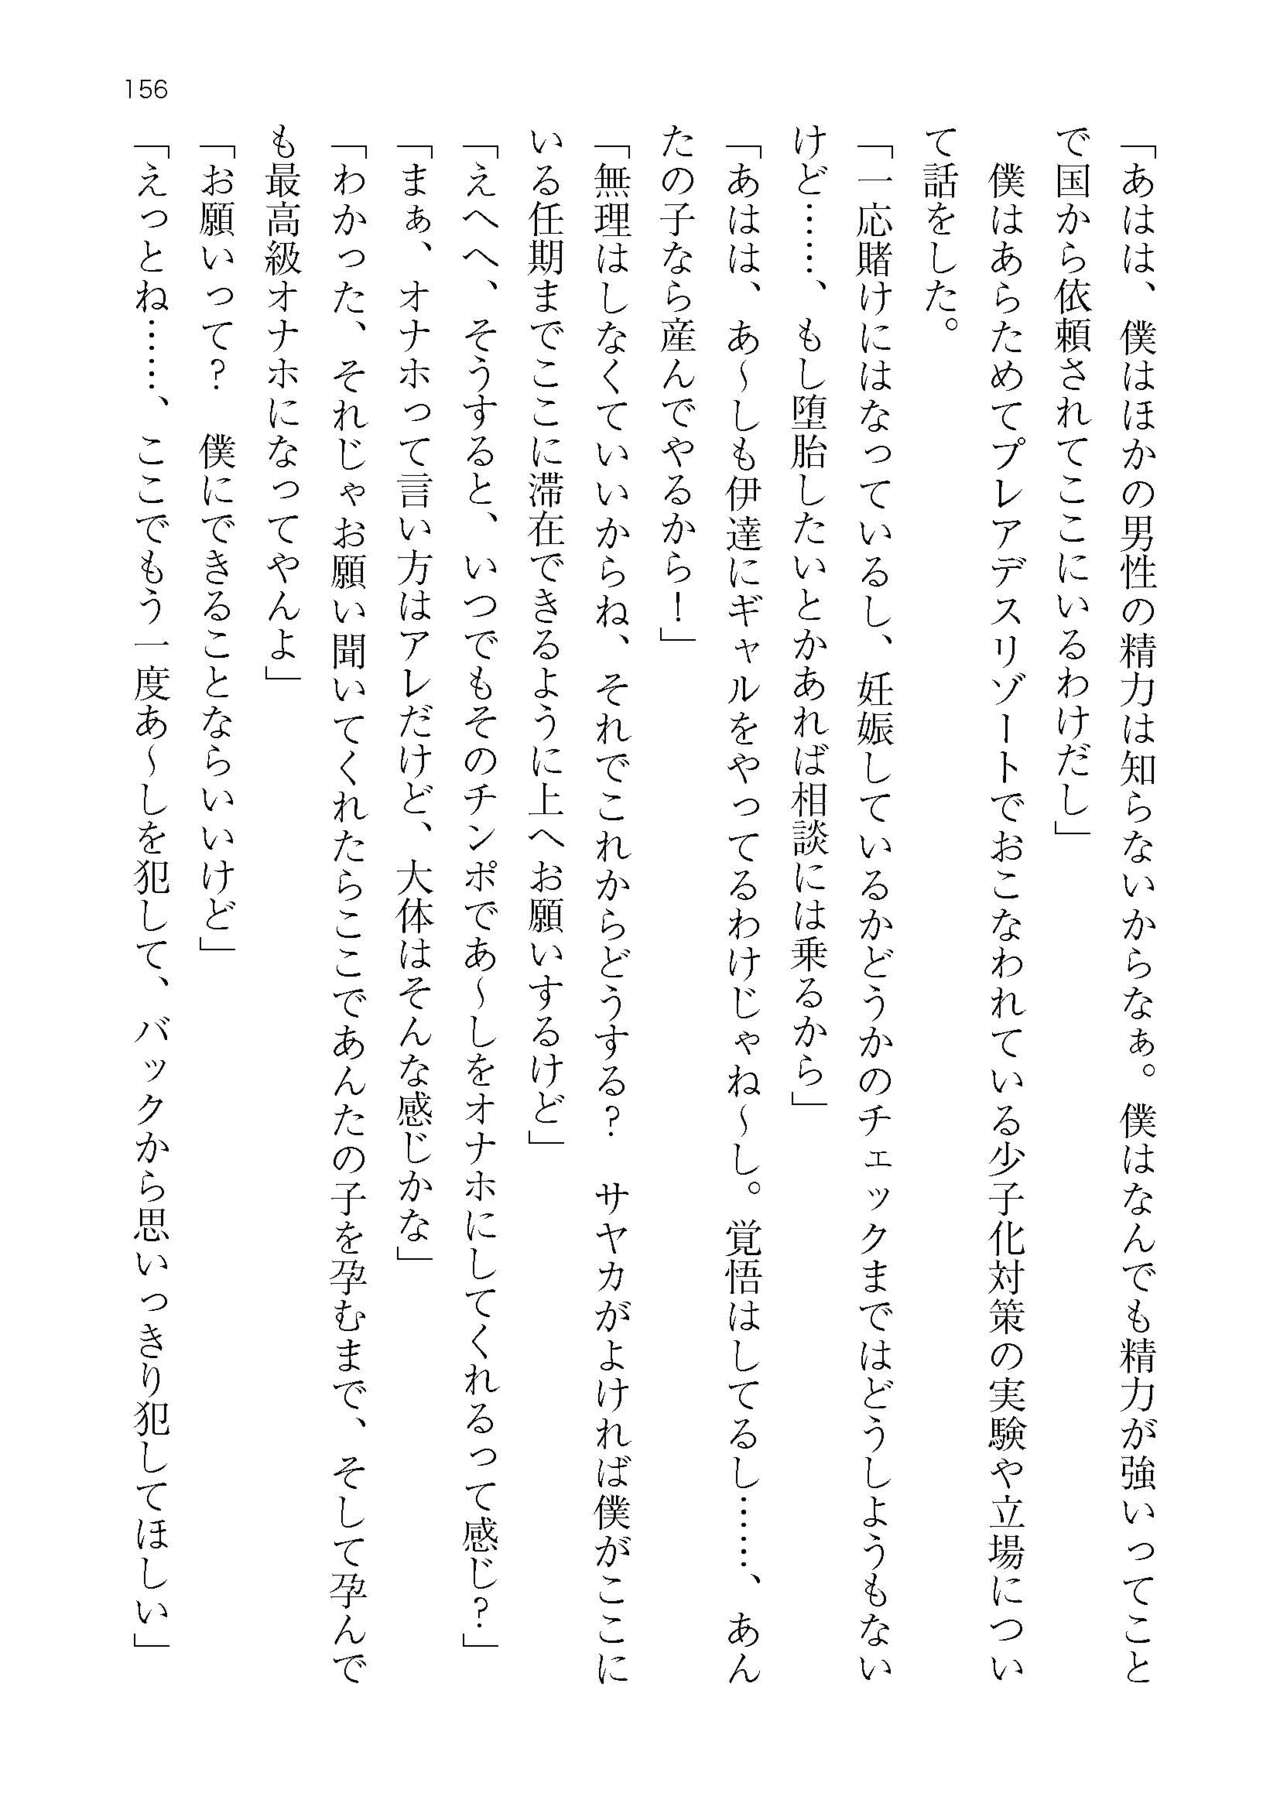 156
「あはは、僕はほかの男性の精力は知らないからなぁ。僕はなんでも精力が強いってこと
で国から依頼されてここにいるわけだし」
　僕はあらためてプレアデスリゾートでおこなわれている少子化対策の実験や立場につい
て話をした。
「一応賭けにはなっているし、妊娠しているかどうかのチェックまではどうしようもない
けど……、もし堕胎したいとかあれば相談には乗るから」
「あはは、あ～しも伊達にギャルをやってるわけじゃね～し。覚悟はしてるし……、あん
たの子なら産んでやるから！」
「無理はしなくていいからね、それでこれからどうする？　サヤカがよければ僕がここに
いる任期までここに滞在できるように上へお願いするけど」
「えへへ、そうすると、いつでもそのチンポであ～しをオナホにしてくれるって感じ？」
「まぁ、オナホって言い方はアレだけど、大体はそんな感じかな」
「わかった、それじゃお願い聞いてくれたらここであんたの子を孕むまで、そして孕んで
も最高級オナホになってやんよ」
「お願いって？　僕にできることならいいけど」
「えっとね……、ここでもう一度あ～しを犯して、バックから思いっきり犯してほしい」